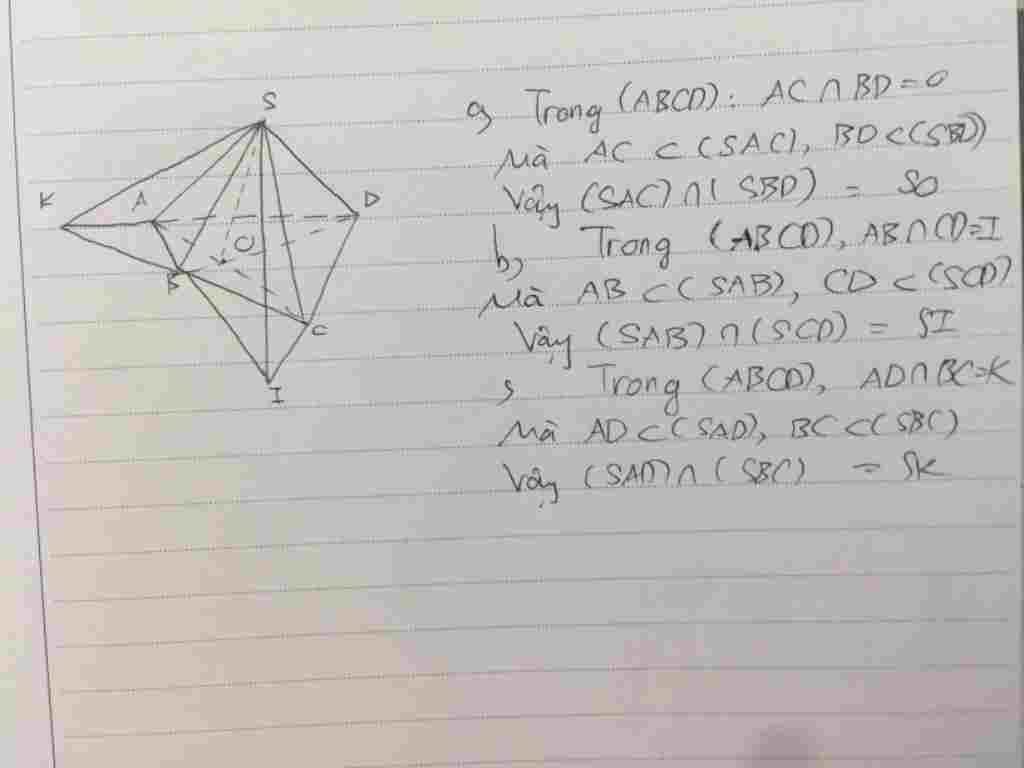 S
K
A
D
O
B
C
I
a, Trong (ABCD): AC ∩ BD = O
Mà AC ⊂ (SAC), BD ⊂ (SBD)
Vậy (SAC) ∩ (SBD) = SO
b, Trong (ABCD), AB ∩ CD = I
Mà AB ⊂ (SAB), CD ⊂ (SCD)
Vậy (SAB) ∩ (SCD) = SI
Trong (ABCD), AD ∩ BC = K
Mà AD ⊂ (SAD), BC ⊂ (SBC)
Vậy (SAD) ∩ (SBC) = SK